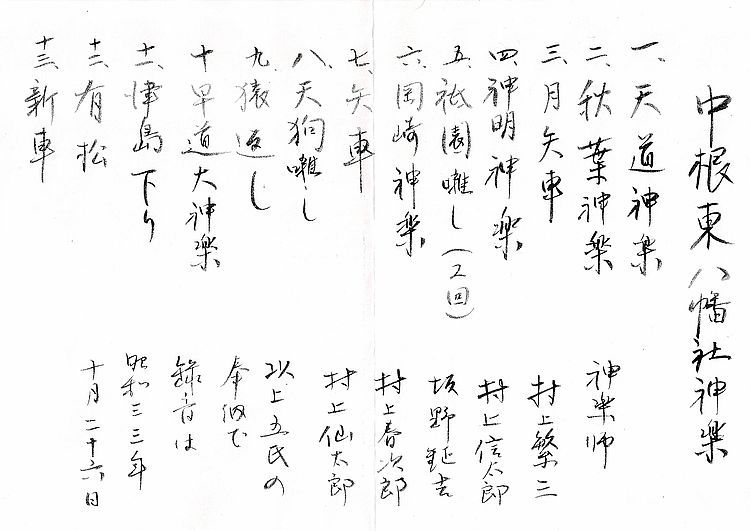 中根東八幡社神楽
一、天道神楽
二、秋葉神楽
三、月矢車
四、神明神楽
五、祇園囃し（2回）
六、岡崎神楽
七、矢車
八、天狗囃し
九、猿返し
十、早道大神楽
十一、津島下り
十二、有松
十三、新車
神楽師
村上繁三
村上信太郎
坂野鉦吉
村上春次郎
村上仙太郎
以上五氏の
奉納で
録音は
昭和三三年
十月二十六日